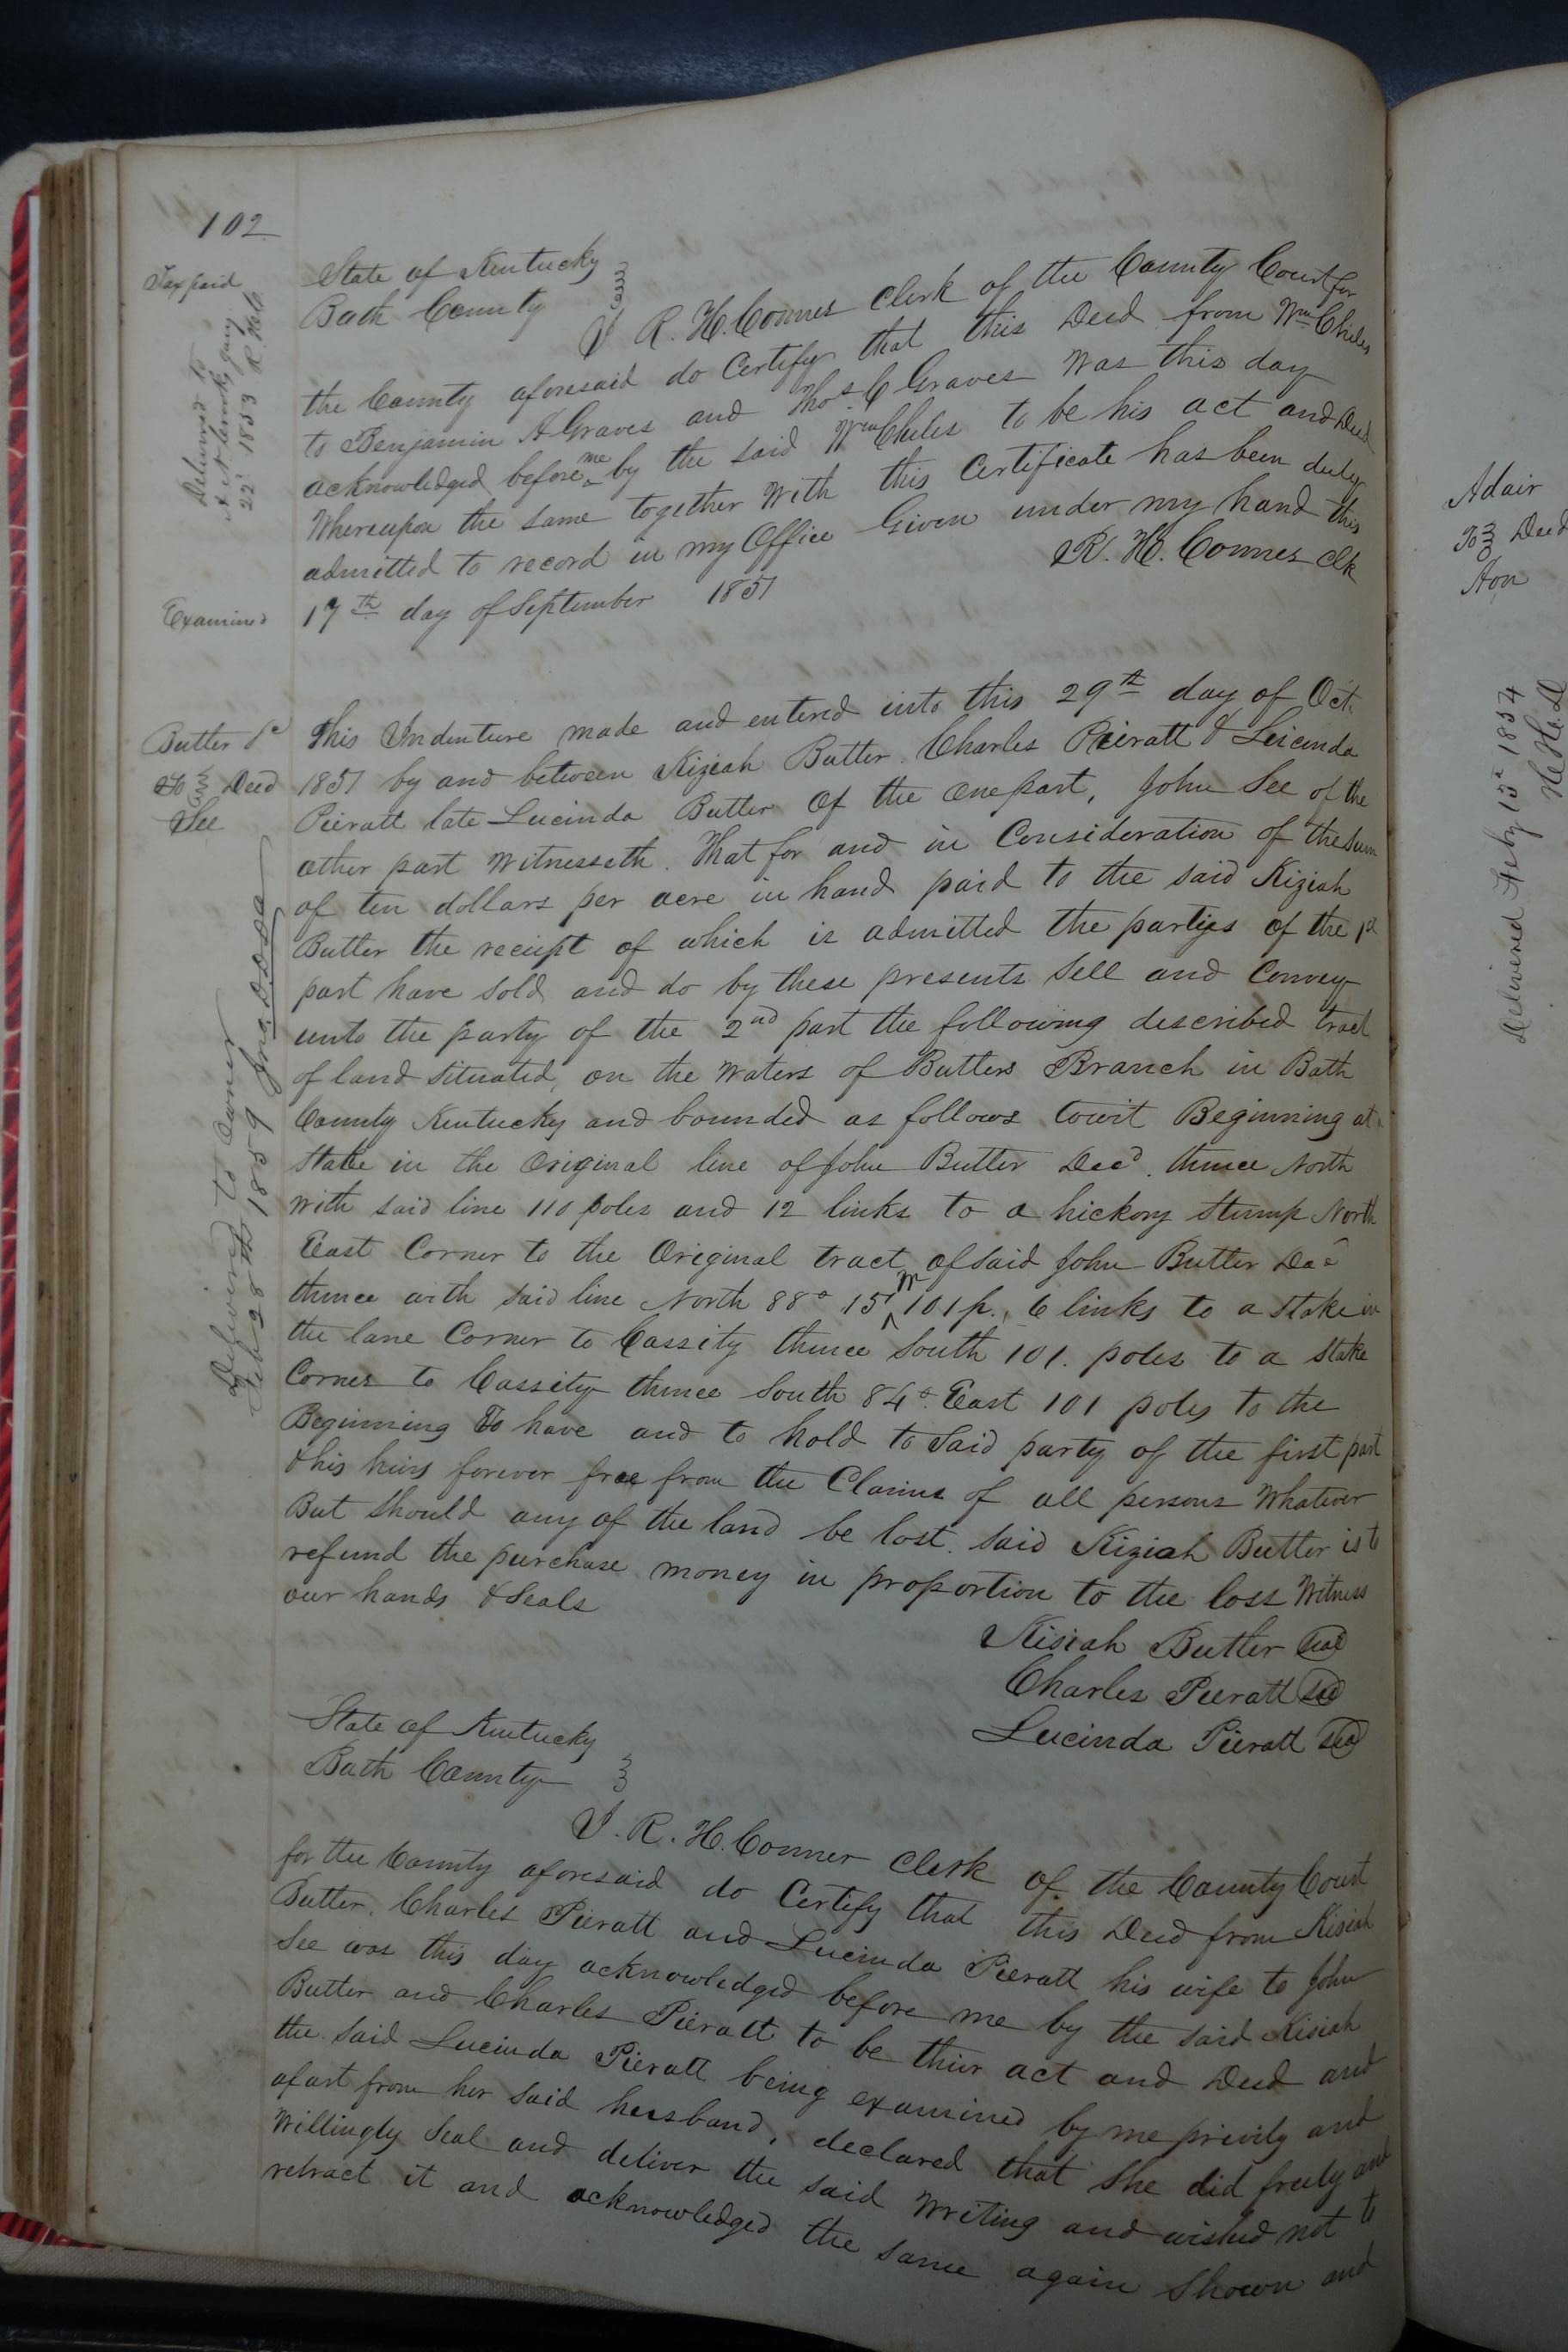 102
Tax paid
State of Kentucky
Bath County
I R. H. Conner Clerk of the County Court for
the County aforesaid do Certify that this Deed from Wm Chiles
to Benjamin A Graves and Thos. C Graves was this day
acknowledged before me by the said Wm Chiles to be his act and Deed
Whereupon the same together with this Certificate has been duly
admitted to record in my Office Given under my hand this
17th day of September 1851
R. H. Conner Clk
Delivered to
22d 1853 R. H. C
Examined
Butler &c
To Deed
See
This Indenture made and entered into this 29th day of Oct.
1851 by and between Kiziah Butler. Charles Pieratt & Lucinda
Pieratt late Lucinda Butler of the one part, John See of the
other part Witnesseth. That for and in Consideration of the sum
of ten dollars per acre in hand paid to the said Kiziah
Butler the receipt of which is admitted the parties of the 1st
part have sold and do by these presents sell and Convey
unto the party of the 2nd part the following described tract
of land situated, on the Waters of Butlers Branch in Bath
County Kentucky and bounded as follows towit Beginning at
Stake in the Original line of John Butler Decd. thence North
with said line 110 poles and 12 links to a hickory Stump North
East Corner to the Original tract of said John Butler Decd
thence with said line North 88° 15' W 101 p., 6 links to a Stake in
the lane Corner to Cassity thence South 101. poles to a Stake
Corner to Cassity thence South 84° East 101 poles to the
Beginning To have and to hold to Said party of the first part
& his heirs forever free from the Claims of all persons Whatever
But Should any of the land be lost. said Kiziah Butler is to
refund the purchase money in proportion to the loss Witness
our hands & Seals
Kisiah Butler Seal
Charles Pieratt Seal
Lucinda Pieratt Seal
Delivered to Owner
Feb 28th 1859
State of Kentucky
Bath County
I. R. H. Conner Clerk of the County Court
for the County aforesaid do Certify that this Deed from Kisiah
Butler. Charles Pieratt and Lucinda Pieratt his wife to John
See was this day acknowledged before me by the said Kisiah
Butler and Charles Pieratt to be their act and Deed and
the said Lucinda Pieratt being examined by me privily and
apart from her said husband, declared that She did freely and
Willingly Seal and deliver the said Writing and wished not to
retract it and acknowledged the same again Shown and
Adair
To Deed
Delivered Feby 15th 1854